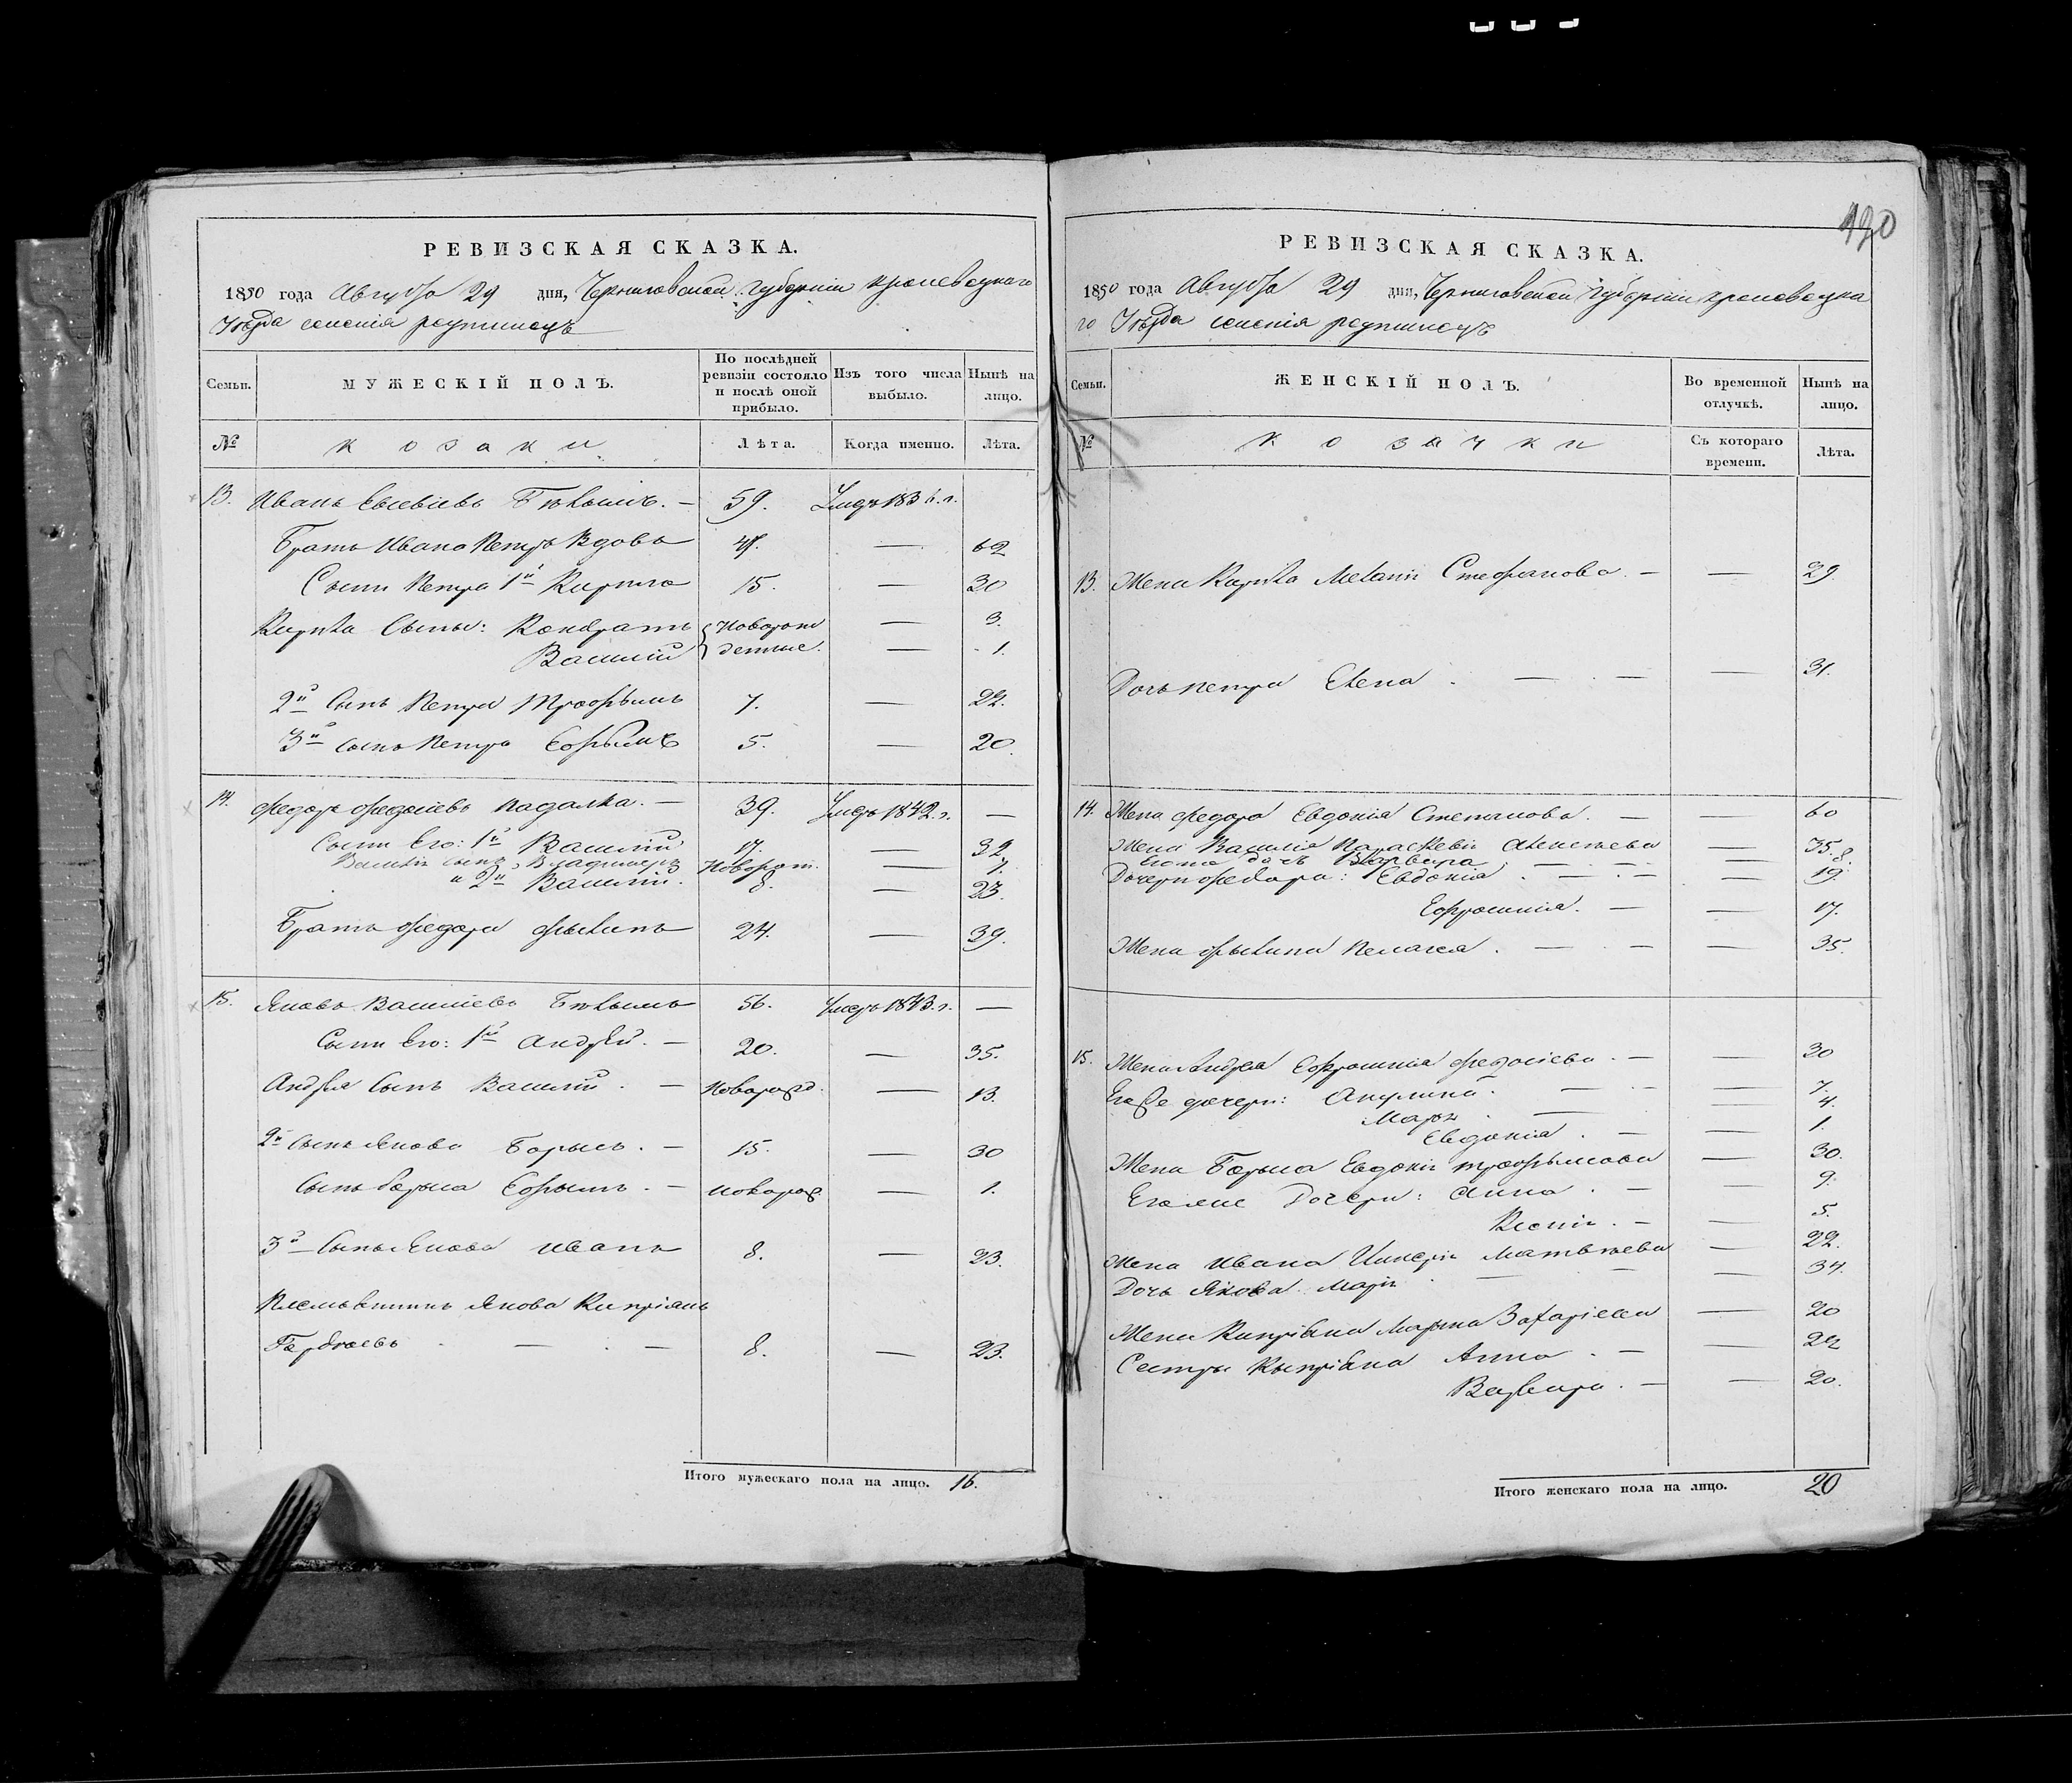 РЕВИЗСКАЯ СКАЗКА.
1850 года Августа 29 дня, Черниговской Губерніи Кролевецкого
Уезда селенія
Семьи. МУЖЕСКІЙ ПОЛЪ. По послѣдней ревизіи состояло и послѣ оной прибыло. Изъ того числа выбыло. Нынѣ на лицо.
№ козаки Лѣта. Когда именно. Лѣта.
13. Иванъ 59. Умеръ 1836.г.
Братъ Ивана Петръ Вдовъ 47. — 62
Сыни Петра 1й Кирило 15. — 30
Кирила Сыны: Кондратъ Новорож — 3.
Василій денные. — 1.
2й Сынъ Петра Трофымъ 7. — 22.
3й Сынъ Петра Ефымъ 5. — 20.
14. Федоръ Падалка. — 39. Умеръ 1842.г. —
Сыни Его: 1й Василій 17. — 32
Василія сынъ Владимеръ Новорож. — 7.
" 2й Василій. 8. — 23.
Братъ Федора Филипъ 24. — 39.
15. Яковъ Василіевъ 56. Умеръ 1843.г. —
Сыни Его: 1й Андрей. — 20. — 35.
Андрея Сынъ Василій. — Новорожд. — 13.
2й Сынъ Якова Борисъ. — 15. — 30
Сынъ Бориса Ефымъ. — новорож. — 1.
3й Сынъ Якова Иванъ 8. — 23.
Племьянникъ Якова Кипріянъ
— . — 8. — 23.
Итого мужескаго пола на лицо. 16.
190
РЕВИЗСКАЯ СКАЗКА.
1850 года Августа 29 дня, Черниговской Губерніи Кролевецка
го Уезда селенія
Семьи. ЖЕНСКІЙ ПОЛЪ. Во временной отлучкѣ. Нынѣ на лицо.
№ козачки Съ котораго времени. Лѣта.
13. Жена Кирила Меланія Стефанова. — — 29
Дочь Петра Елена . — . — — 31.
14. Жена Федора Евдокія Степанова. — — 60
Жена Василія Параскевія Алексѣева — 35.
дочь Варвара . — . — — 8.
Дочери Федора: Евдокія . — . — — 19.
Ефросинія. — — 17.
Жена Филипа Пелагея . — . — — 35.
15. Жена Андрея Ефросинія Федосіева . — — 30
дочери: Акулина . — . — — 7.
Марія . — 4.
Евдокія . — 1.
Жена Бориса Евдокія Трофымова — 30.
Его же Дочери: Анна . — — 9.
Ксенія . — — 5.
Жена Ивана Матвѣева — 22.
Дочь Якова Марія . — — — 34.
Жена Кипріяна Марина Захаріева — 20
Сестры Кыпріяна Анна . — — 22
Варвара . — — 20.
Итого женскаго пола на лицо. 20